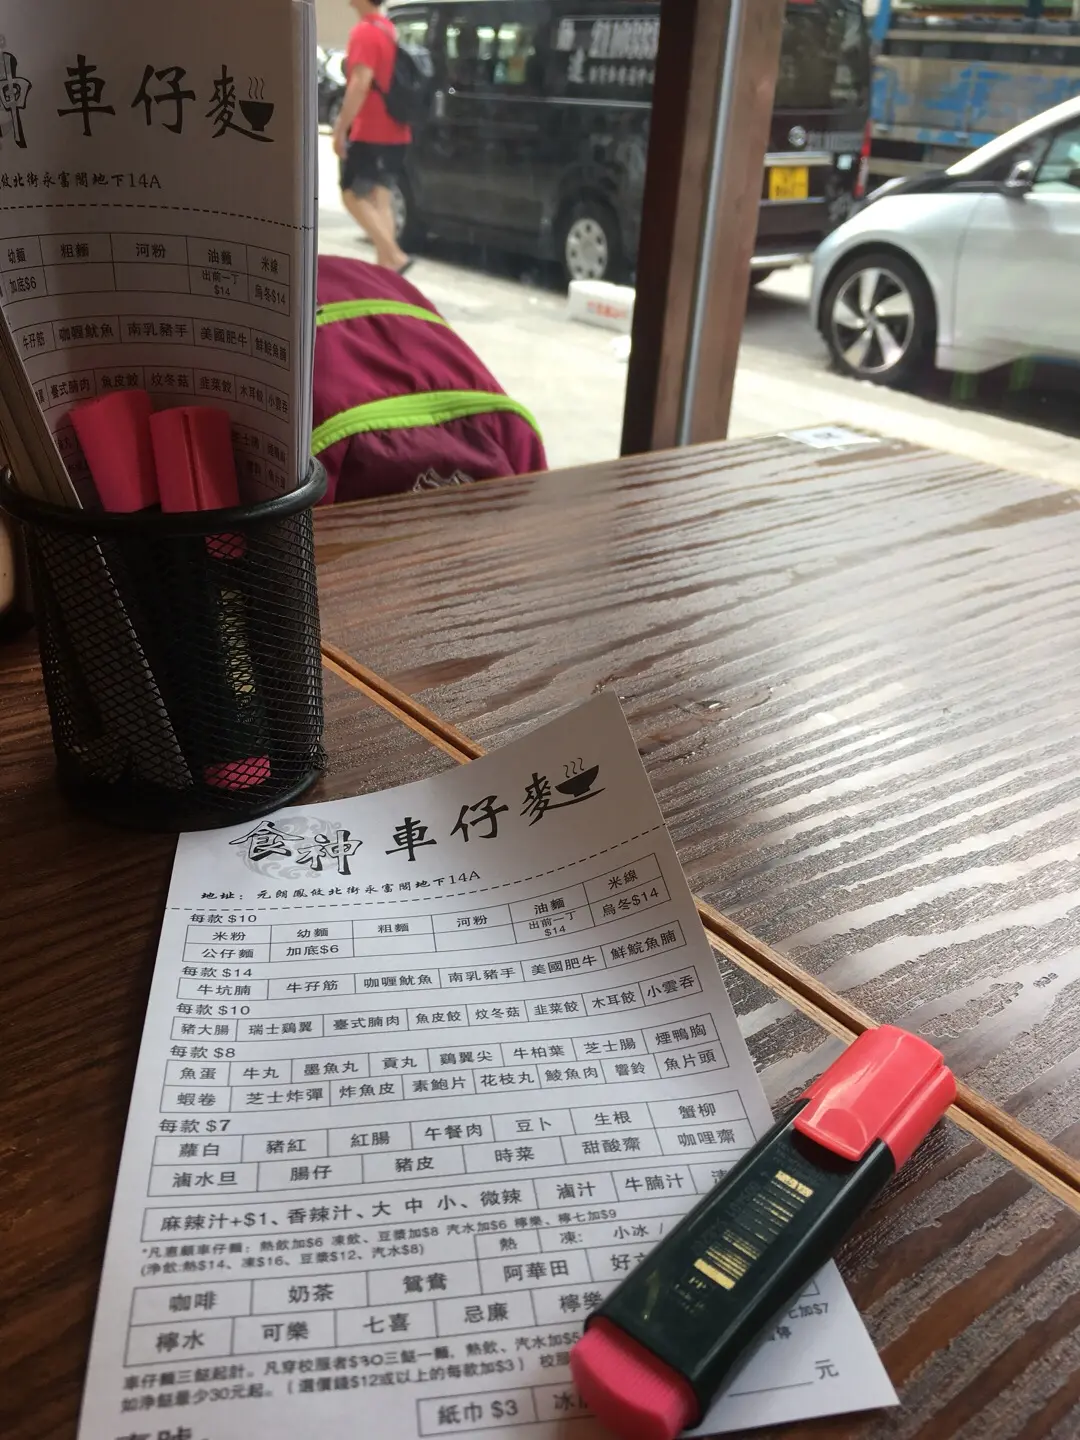 神 車仔麵
北街永富閣地下14A
幼麵 粗麵 河粉 油麵 米線
加底$6 出前一丁 $14 烏冬$14
牛孖筋 咖喱魷魚 南乳豬手 美國肥牛 鮮鯇魚腩
臺式腩肉 魚皮餃 炆冬菇 韭菜餃 木耳餃 小雲吞
食神 車仔麵
地址: 元朗鳳攸北街永富閣地下14A
每款 $10
米粉 幼麵 粗麵 河粉 油麵 米線
公仔麵 加底$6 出前一丁 $14 烏冬$14
每款 $14
牛坑腩 牛孖筋 咖喱魷魚 南乳豬手 美國肥牛 鮮鯇魚腩
每款 $10
豬大腸 瑞士鷄翼 臺式腩肉 魚皮餃 炆冬菇 韭菜餃 木耳餃 小雲吞
每款 $8
魚蛋 牛丸 墨魚丸 貢丸 鷄翼尖 牛柏葉 芝士腸 煙鴨胸
蝦卷 芝士炸彈 炸魚皮 素鮑片 花枝丸 鯪魚肉 響鈴 魚片頭
每款 $7
蘿白 豬紅 紅腸 午餐肉 豆卜 生根 蟹柳
滷水旦 腸仔 豬皮 時菜 甜酸齋 咖哩齋
麻辣汁+$1、香辣汁、大 中 小、微辣 滷汁 牛腩汁
*凡惠顧車仔麵: 熱飲加$6 凍飲、豆漿加$8 汽水加$6 檸樂、檸七加$9
(淨飲:熱$14、凍$16、豆漿$12、汽水$8) 熱 凍: 小冰 /
咖啡 奶茶 鴛鴦 阿華田 好
檸水 可樂 七喜 忌廉 檸樂
車仔麵三餸起計。凡穿校服者$30三餸一麵。熱飲、汽水加$5 七加$7
如淨餸最少30元起。(選價錢$12或以上的每款加$3) 校服
紙巾 $3 冰 元